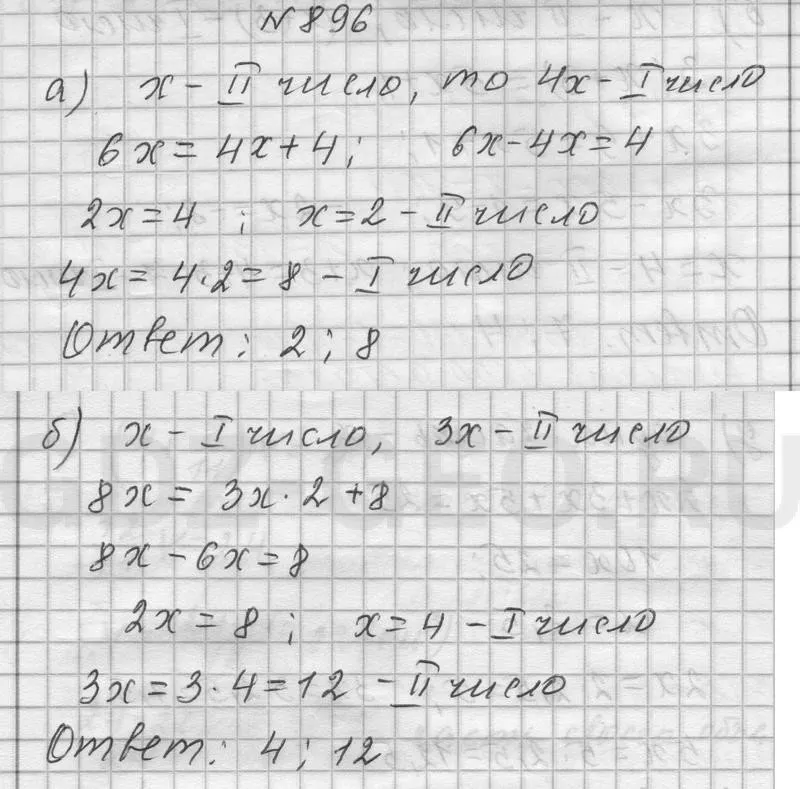 №896
а) x - II число, то 4x - I число
6x = 4x + 4; 6x - 4x = 4
2x = 4 ; x = 2 - II число
4x = 4·2 = 8 - I число
Ответ: 2; 8
б) x - I число, 3x - II число
8x = 3x·2 + 8
8x - 6x = 8
2x = 8 ; x = 4 - I число
3x = 3·4 = 12 - II число
Ответ: 4; 12